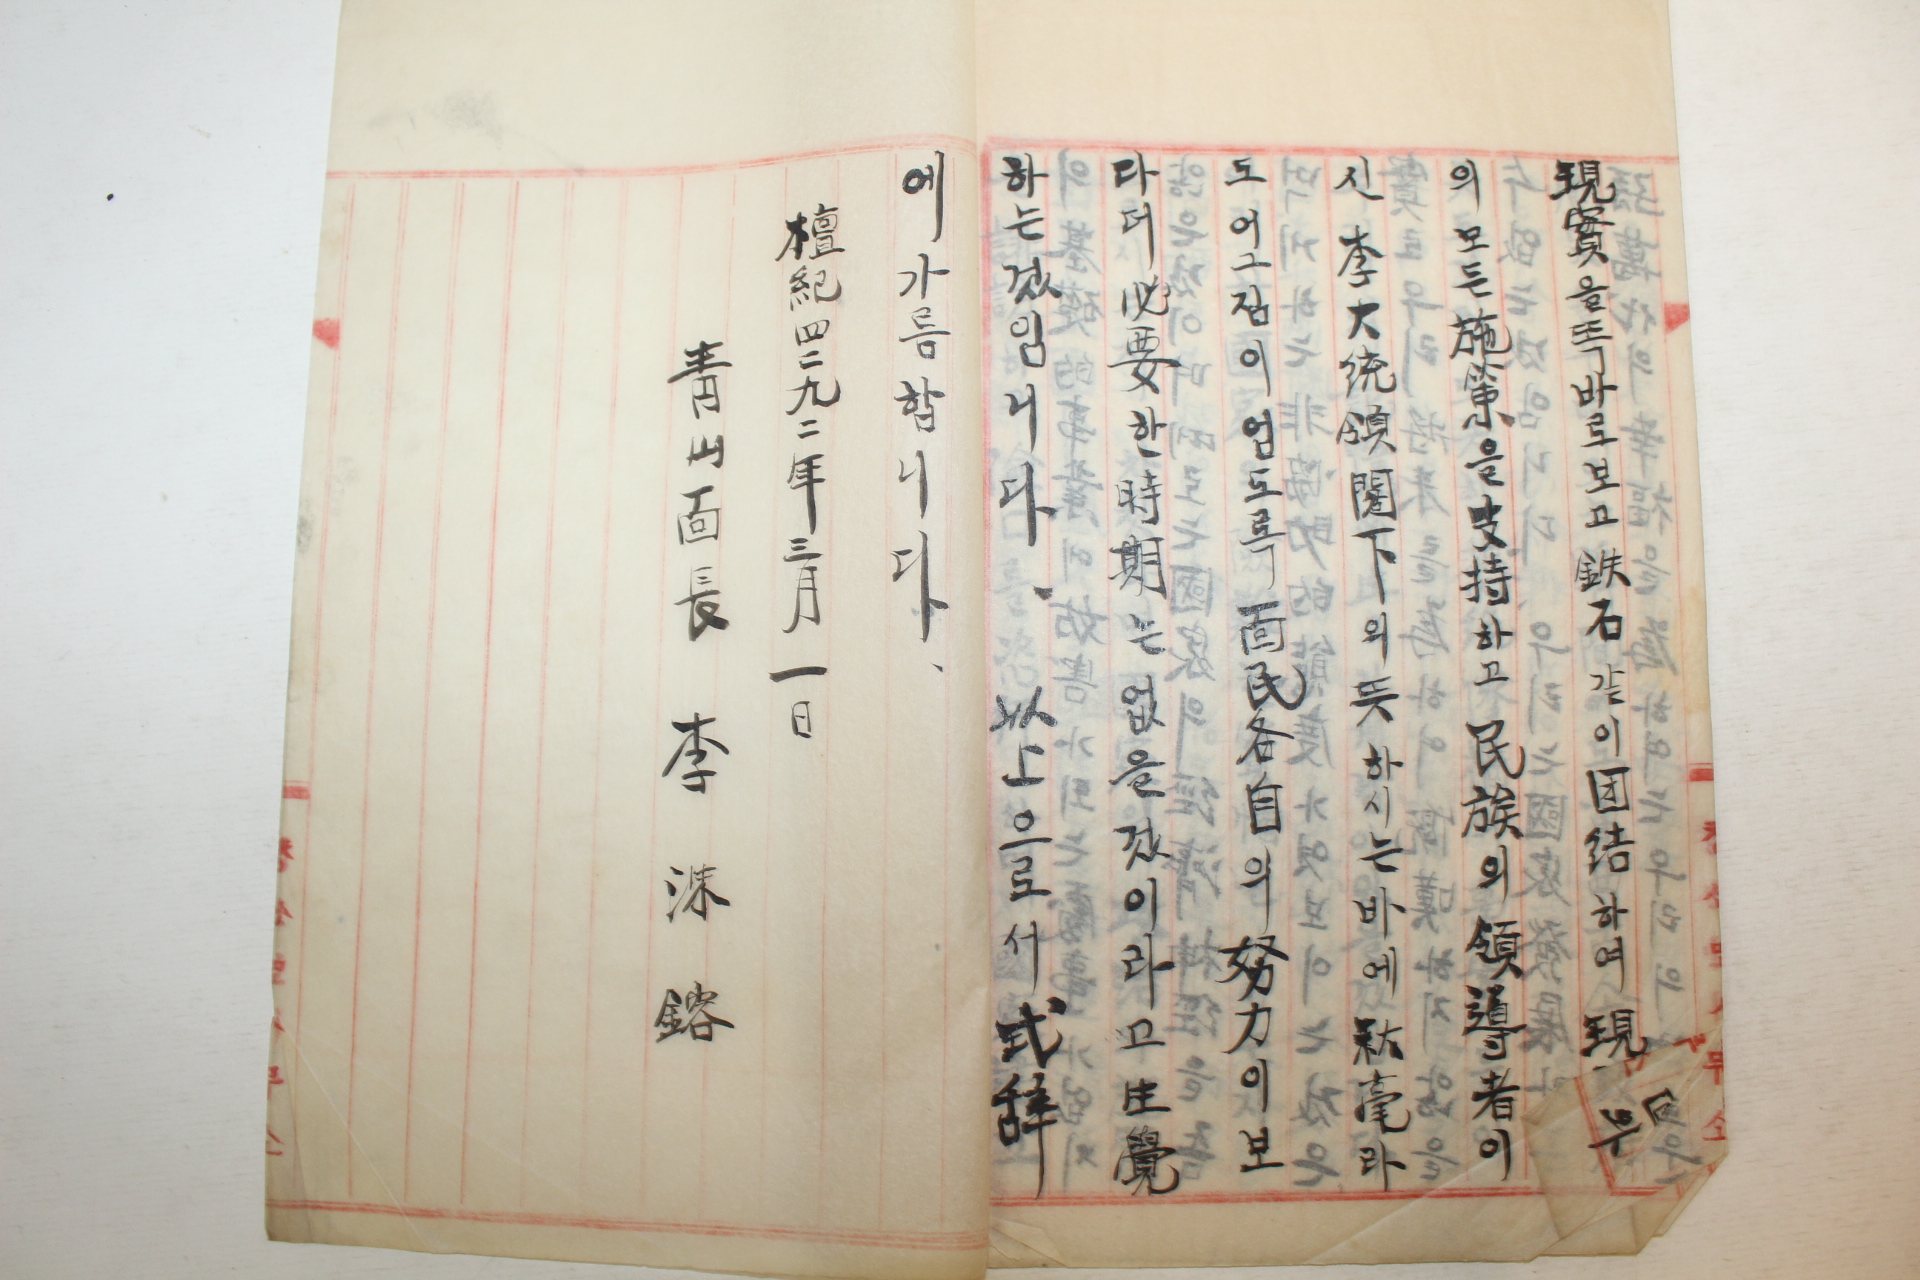 現實을 똑바로 보고 鉄石갗이 団結하여 現
의 모든 施策을 支持하고 民族의 領導者이
신 李大統領閣下의 뜻하시는바에 秋毫라
도 어그점이 업도록 面民各自의 努力이 보
다 더 必要한 時期는 없을 겄이라고 生覺
하는 겄임니다. 以上으로서 式辞
에 가름함니다.
檀紀四二九二年三月一日
青山面長 李洙鎔